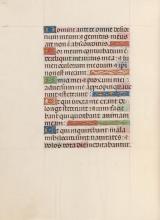 Domine ante te omne desi
rium meum et gemitus meus
a te non est absconditus
Cor meum conturbatum est
dereliquit me virtus mea et lu
men oculorum meorum et ipsu
non est mecum
Amici mei et proximi mei
adversum me appropinqua
verunt et steterunt
Et qui iuxta me erant de
longe steterunt et vim facie
bant qui querebant animam
Et qui inquirebant mala
michi locuti sunt vanitates et
dolos tota die meditabantur